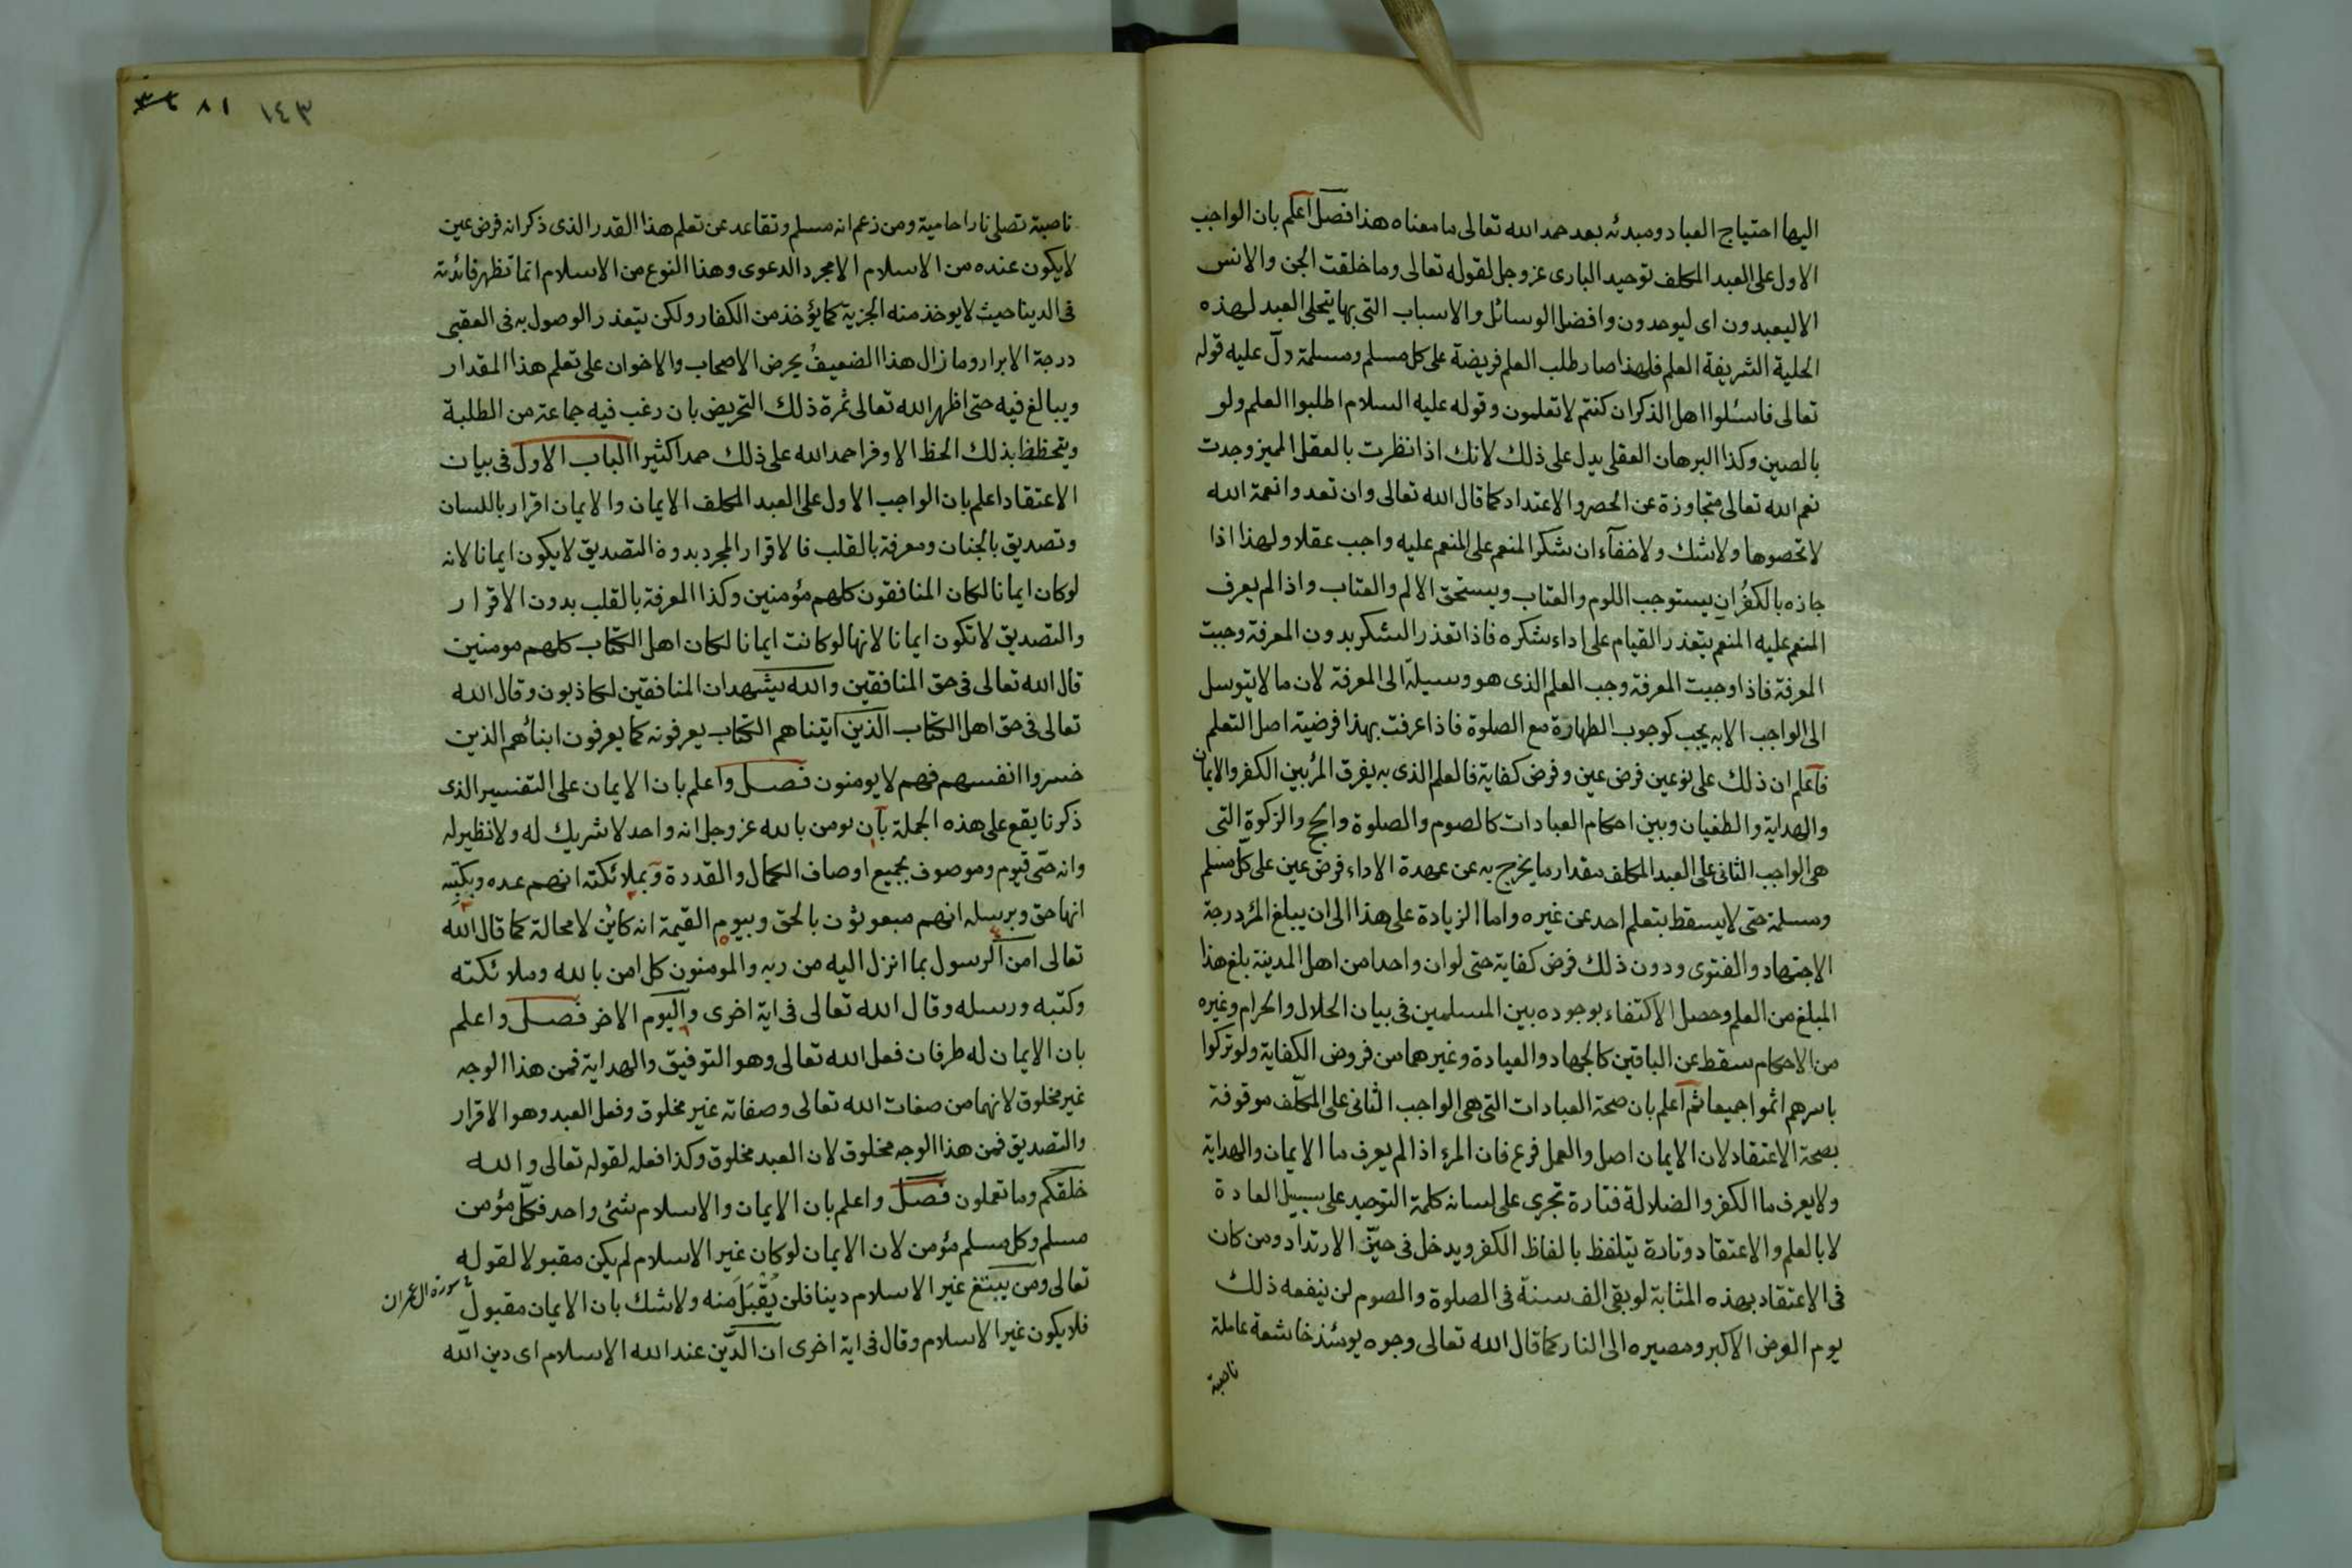 اليها احتياج العباد ومبدئه بعد حمد الله تعالى ما معناه هذا فصل اعلم بان الواجب
الاول على العبد المكلف توحيد البارى عز وجل لقوله تعالى وما خلقت الجن والانس
الا ليعبدون اى ليوحدون وافضل الوسائل والاسباب التى بها يتحلى العبد لهذه
الحلية الشريفة العلم فلهذا صار طلب العلم فريضة على كل مسلم ومسلمة دلّ عليه قوله
تعالى فاسئلوا اهل الذكر ان كنتم لا تعلمون وقوله عليه السلام اطلبوا العلم ولو
بالصين وكذا البرهان العقلى يدل على ذلك لانك اذا نظرت بالعقل المميز وجدت
نعم الله تعالى متجاوزة عن الحصر والاعتداد كما قال الله تعالى وان تعدوا نعمة الله
لا تحصوها ولا شك ولا خفآء ان شكر المنعم على المنعم عليه واجب عقلا ولهذا اذا
جازه بالكفُرانِ يستوجب اللوم والعتاب ويستحق الالم والعقاب واذا لم يعرف
المنعم عليه المنعم يتعذر القيام على اداء شكره فاذا تعذر الشكر بدون المعرفة وجبت
المعرفة فاذا وجبت المعرفة وجب العلم الذى هو وسيلة الى المعرفة لان ما لا يتوسل
الى الواجب الا به يجب كوجوب الطهارة مع الصلوة فاذا عرفت بهذا فرضية اصل التعلم
فاعلم ان ذلك على نوعين فرض عين وفرض كفاية فالعلم الذى به يفرق المرٔ بين الكفر والايمان
والهداية والطغيان وبين احكام العبادات كالصوم والصلوة والحج والزكوة التى
هى الواجب الثانى على العبد المكلف مقدار ما يخرج به عن عهدة الاداء فرض عين على كلّ مسلم
ومسلمة حتى لا يسقط بتعلم احد عن غيره واما الزيادة على هذا الى ان يبلغ المرٔ درجة
الاجتهاد والفتوى ودون ذلك فرض كفاية حتى لو ان واحدا من اهل المدينة بلغ هذا
المبلغ من العلم وحصل الاكتفاء بوجوده بين المسلمين فى بيان الحلال والحرام وغيره
من الاحكام سقط عن الباقين كالجهاد والعيادة وغيرهما من فروض الكفاية ولو تركوا
باسرهم اثموا جميعا ثم اعلم بان صحة العبادات التى هى الواجب الثانى على المكلّف موقوفة
بصحة الاعتقاد لان الايمان اصل والعمل فرع فان المرء اذا لم يعرف ما الايمان والهداية
ولا يعرف ما الكفر والضلالة فتارة تجرى على لسانه كلمة التوحيد على سبيل العادة
لا بالعلم والاعتقاد وتارة يتلفظ بالفاظ الكفر ويدخل فى حيّز الارتداد ومن كان
فى الاعتقاد بهذه المثابة لو بقى الف سنة فى الصلوة والصوم لن ينفعه ذلك
يوم العرض الاكبر ومصيره الى النار كما قال الله تعالى وجوه يومئذ خاشعة عاملة
ناصبة
١٤٣ ٨١
ناصبة تصلى نارا حامية ومن زعم انه مسلم وتقاعد عن تعلم هذا القدر الذى ذكر انه فرض عين
لا يكون عنده من الاسلام الا مجرد الدعوى وهذا النوع من الاسلام انما تظهر فائدته
فى الدينا حيث لا يوخذ منه الجزية كما يؤخذ من الكفار ولكن يتعذر الوصول به فى العقبى
درجة الابرار وما زال هذا الضعيفُ يحرض الاصحاب والاخوان على تعلم هذا المقدار
ويبالغ فيه حتى اظهر الله تعالى ثمرة ذلك التحريض بان رغب فيه جماعة من الطلبة
ويتحظظ بذلك الحظ الاوفر احمد الله على ذلك حمدا كثيرا الباب الاول فى بيان
الاعتقاد اعلم بان الواجب الاول على العبد المكلف الايمان والايمان اقرار باللسان
وتصديق بالجنان ومعرفة بالقلب فالاقرار المجرد بدون التصديق لا يكون ايمانا لانه
لو كان ايمانا لكان المنافقون كلهم مؤمنين وكذا المعرفة بالقلب بدون الاقرار
والتصديق لا تكون ايمانا لانها لو كانت ايمانا لكان اهل الكتاب كلهم مومنين
قال الله تعالى فى حق المنافقين والله يشهد ان المنافقين لكاذبون وقال الله
تعالى فى حق اهل الكتاب الذين آتيناهم الكتاب يعرفونه كما يعرفون ابنائهم الذين
خسروا انفسهم فهم لا يومنون فصل واعلم بان الايمان على التفسير الذى
ذكرنا يقع على هذه الجملة بان يومن بالله عز وجل انه واحد لا شريك له ولا نظير له
وانه حىّ قيوم وموصوف بجميع اوصاف الكمال والقدرة وبملائكته انهم عبده وبكتبه
انها حق وبرسله انهم مبعوثون بالحق وبيوم القيمة انه كاين لا محالة كما قال الله
تعالى امن الرسول بما انزل اليه من ربه والمومنون كل امن بالله وملائكته
وكتبه ورسله وقال الله تعالى فى اية اخرى واليوم الاخر فصل واعلم
بان الايمان له طرفان فعل الله تعالى وهو التوفيق والهداية فمن هذا الوجه
غير مخلوق لانهما من صفات الله تعالى وصفاته غير مخلوق وفعل العبد وهو الاقرار
والتصديق فمن هذا الوجه مخلوق لان العبد مخلوق وكذا فعله لقوله تعالى والله
خلقكم وما تعملون فصل واعلم بان الايمان والاسلام شئى واحد فكلّ مؤمن
مسلم وكل مسلم مؤمن لان الايمان لو كان غير الاسلام لم يكن مقبولا لقوله
تعالى ومن يبتغ غير الاسلام دينا فلن يُقْبَلَ منه ولا شك بان الايمان مقبول
سورة ال عمران
فلا يكون غير الاسلام وقال فى اية اخرى ان الدّين عند الله الاسلام اى دين الله